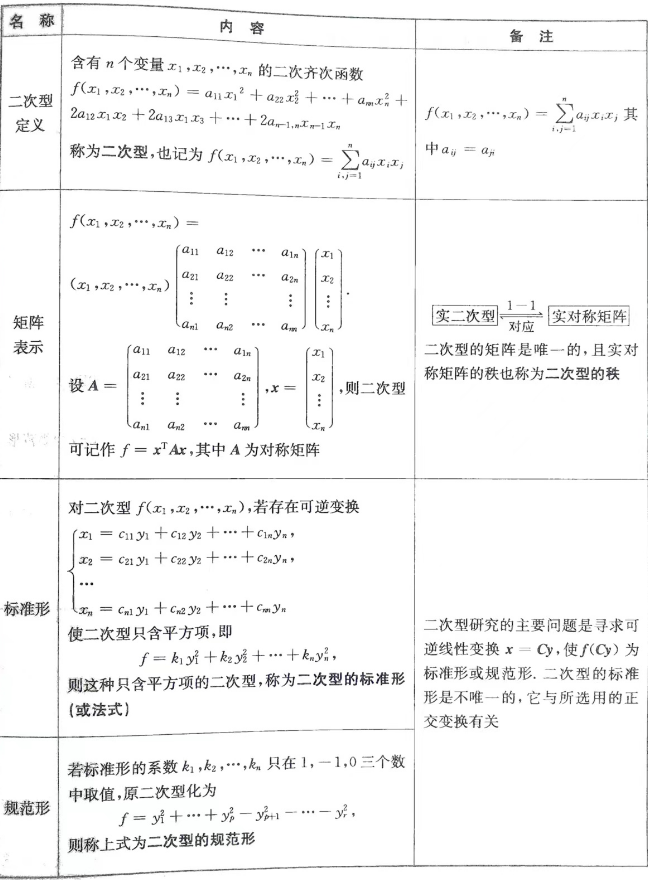 名 称
内 容
备 注
二次型
定义
含有 n 个变量 x₁,x₂,⋯,xₙ 的二次齐次函数
f(x₁,x₂,⋯,xₙ) = a₁₁x₁² + a₂₂x₂² + ⋯ + aₙₙxₙ² +
2a₁₂x₁x₂ + 2a₁₃x₁x₃ + ⋯ + 2aₙ₋₁,ₙxₙ₋₁xₙ
称为二次型,也记为 f(x₁,x₂,⋯,xₙ) = ∑_{i,j=1}^{n} a_{ij}x_ix_j
f(x₁,x₂,⋯,xₙ) = ∑_{i,j=1}^{n} a_{ij}x_ix_j 其
中 a_{ij} = a_{ji}
矩阵
表示
f(x₁,x₂,⋯,xₙ) =
a₁₁ a₁₂ ⋯ a₁ₙ x₁
(x₁,x₂,⋯,xₙ) a₂₁ a₂₂ ⋯ a₂ₙ x₂ .
⋮ ⋮ ⋮ ⋮
aₙ₁ aₙ₂ ⋯ aₙₙ xₙ
a₁₁ a₁₂ ⋯ a₁ₙ x₁
设 A = a₂₁ a₂₂ ⋯ a₂ₙ ,x = x₂ ,则二次型
⋮ ⋮ ⋮ ⋮
aₙ₁ aₙ₂ ⋯ aₙₙ xₙ
可记作 f = xᵀAx,其中 A 为对称矩阵
实二次型 1—1 实对称矩阵
对应
二次型的矩阵是唯一的,且实对
称矩阵的秩也称为二次型的秩
标准形
对二次型 f(x₁,x₂,⋯,xₙ),若存在可逆变换
x₁ = c₁₁y₁ + c₁₂y₂ + ⋯ + c₁ₙyₙ,
x₂ = c₂₁y₁ + c₂₂y₂ + ⋯ + c₂ₙyₙ,
⋯
xₙ = cₙ₁y₁ + cₙ₂y₂ + ⋯ + cₙₙyₙ
使二次型只含平方项,即
f = k₁y₁² + k₂y₂² + ⋯ + kₙyₙ²,
则这种只含平方项的二次型,称为二次型的标准形
(或法式)
二次型研究的主要问题是寻求可
逆线性变换 x = Cy,使 f(Cy) 为
标准形或规范形. 二次型的标准
形是不唯一的,它与所选用的正
交变换有关
规范形
若标准形的系数 k₁,k₂,⋯,kₙ 只在 1,−1,0 三个数
中取值,原二次型化为
f = y₁² + ⋯ + y_p² − y_{p+1}² − ⋯ − y_r²,
则称上式为二次型的规范形